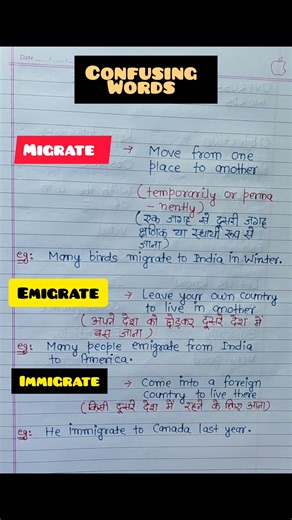 Date
CONFUSING
WORDS
MIGRATE → Move from one
place to another
(temporarily or perma
-nently)
(एक जगह से दूसरी जगह
क्षणिक या स्थायी रूप से
जाना)
eg: Many birds migrate to India in Winter.
EMIGRATE → Leave your own country
to live in another
(अपने देश को छोड़कर दूसरे देश में
बस जाना)
eg: Many people emigrate from India
to America.
IMMIGRATE → Come into a foreign
country to live there
(किसी दूसरे देश में रहने के लिए आना)
eg: He immigrate to Canada last year.